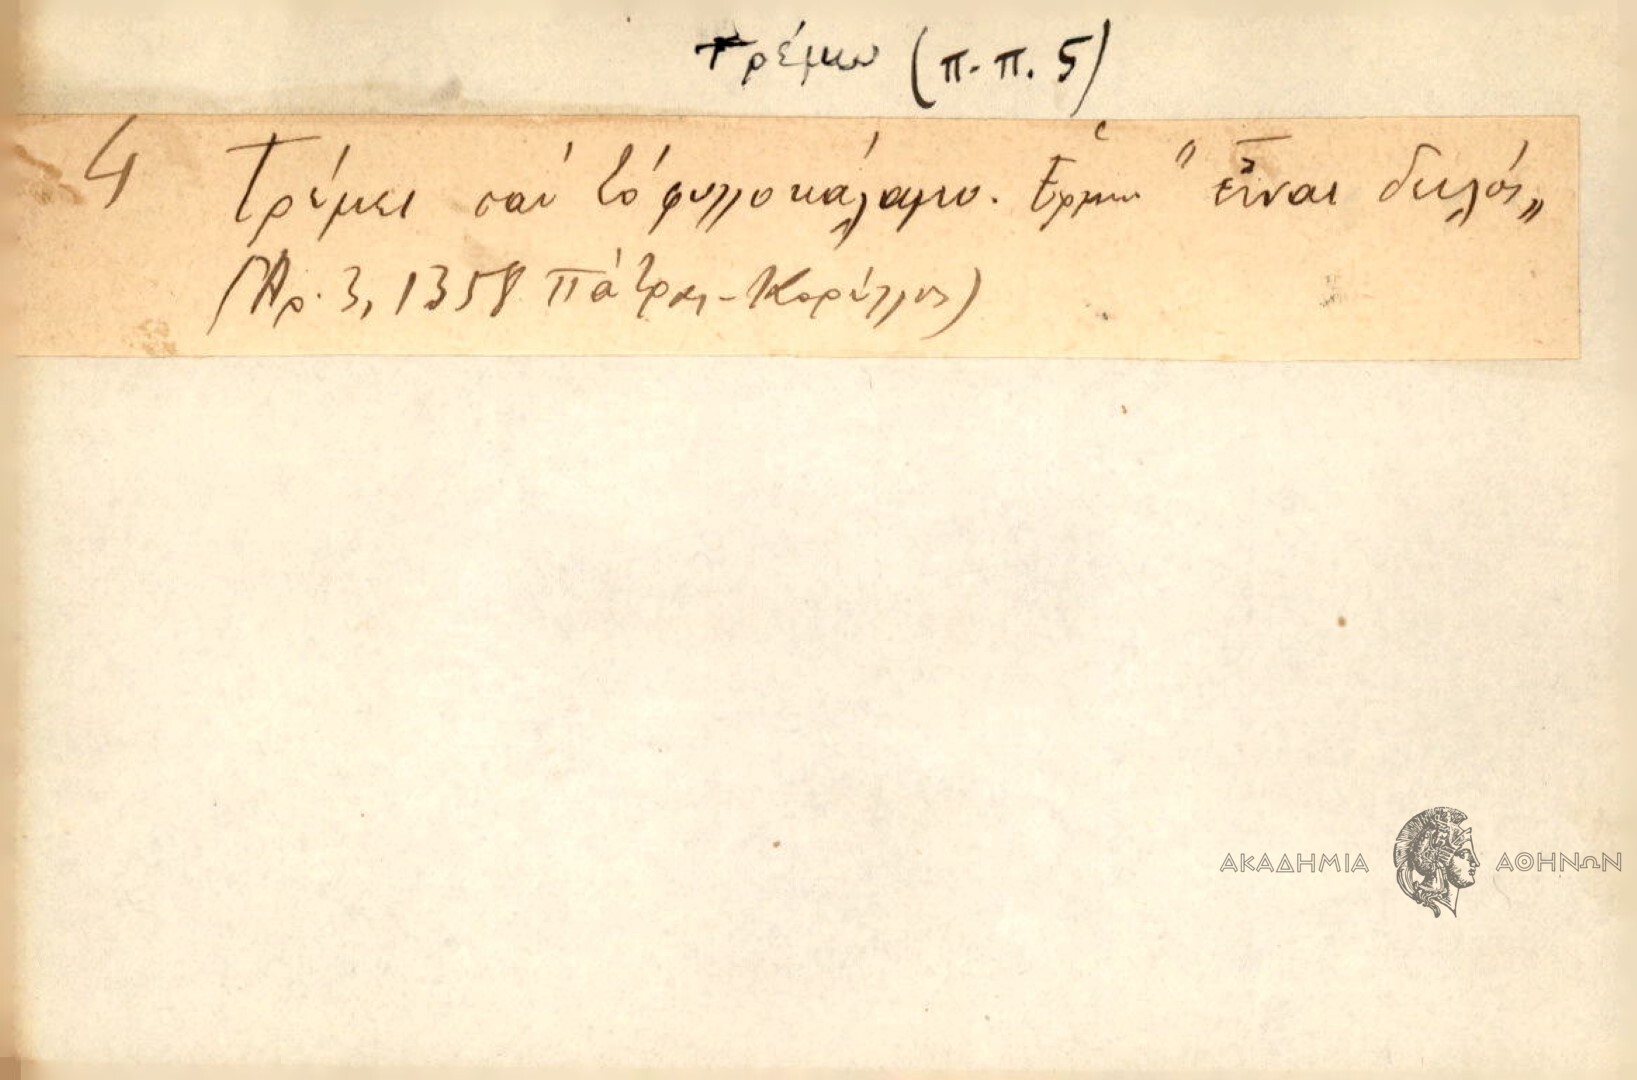 τρέμω (π.π. 5)
4 Τρέμει σαν τό φυλλοκάλαμο. Ἑρμην "εἶναι δειλός„
(Ἀρ. 3, 1358 Πάτραι - Κορύλλος)
ΑΚΑΔΗΜΙΑ ΑΘΗΝΩΝ